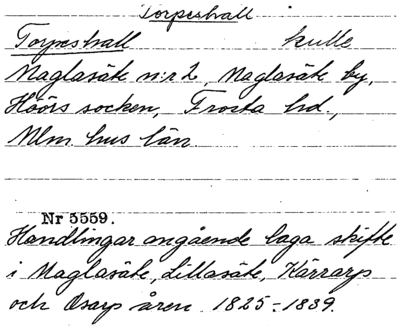 Torpeshall
Torpeshall kulle
Maglasäte n:r 2, Maglasäte by,
Höörs socken, Frosta hd.,
Mlm. hus län.
Nr 5559.
Handlingar angående laga skifte
i Maglasäte, Lillasäte, Kärrarp
och Osarp åren 1825-1839.